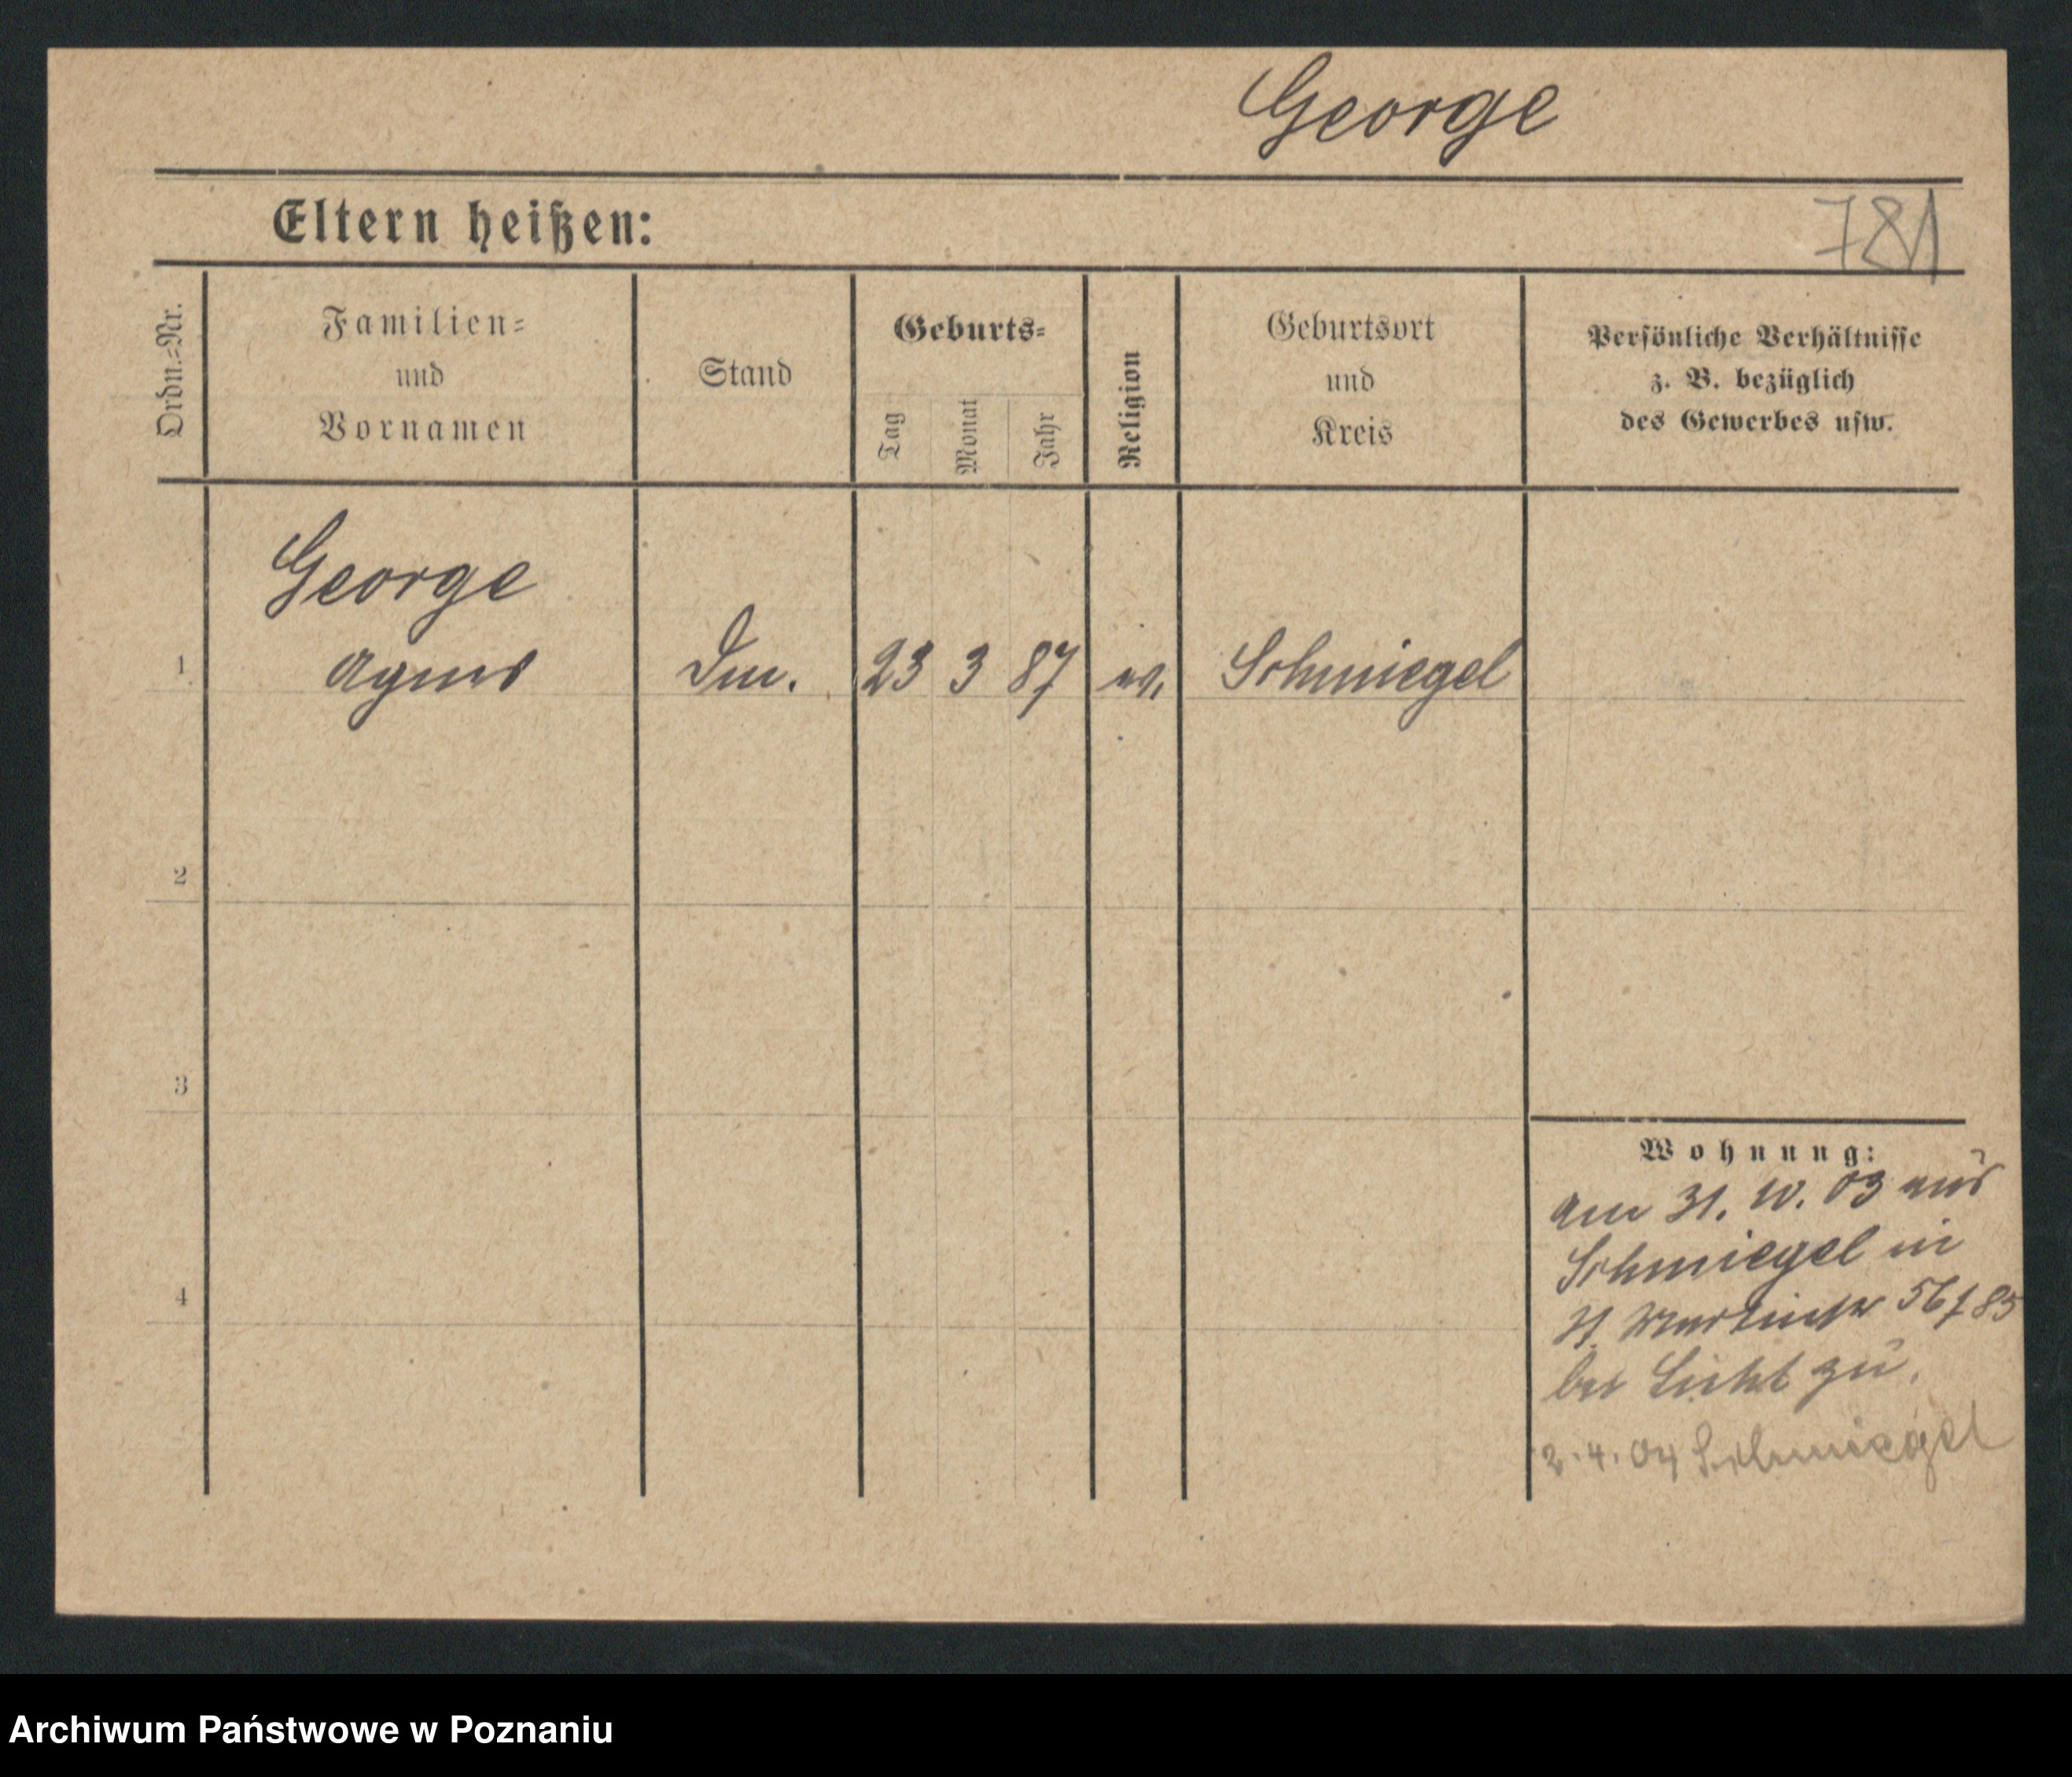 George
Eltern heißen:
781
Ordn.=Nr.
Familien=
und
Vornamen
Stand
Geburts=
Tag
Monat
Jahr
Religion
Geburtsort
und
Kreis
Persönliche Verhältnisse
z. B. bezüglich
des Gewerbes usw.
George
1 Agnes 23 3 87 ev. Schmiegel
2
3
4
Wohnung:
am 31. 10. 03 aus
Schmiegel in
St Martinstr 56
bei Licht zu.
2.4.04 Schmiegel
Archiwum Państwowe w Poznaniu